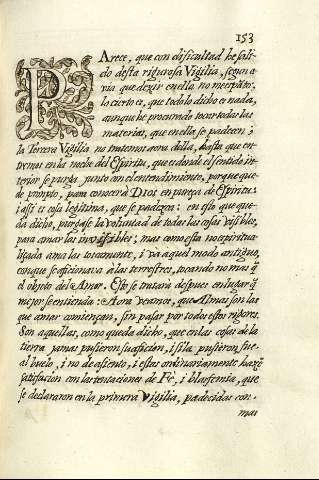 153
PArece, que con dificultad he sali-
do desta rigurosa Vigilia, segun a
via que dezir en ella no mecepatto,
lo cierto es, que todo lo dicho es nada,
aunque he procurado tocar todas las
materias, que en ella se padecen;
la Tercera Vigilia no tratemos aora della, hasta que en-
tremos en la noche del Espiritu, que es donde el sentido in-
terior se purga junto con el entendimiento, porque que-
de prompto, para conocer à Dios en pureza de Espiritu;
i assi es cosa legitima, que se padezca: en esto que que-
da dicho, purgase la voluntad de todas las cosas visibles,
para amar las invissibles; mas como esta no espiritua-
lizada ama las toscamente, i va aquel modo antiguo,
con que se aficionava à las terrestres, tocando no mas q̃
el objeto del Amor. Esto se tratarà despues en lugar q̃
mejor se entienda: Aora veamos, que Almas son las
que amar comiençan, sin pasar por todos estos rigores.
Son aquellas, como queda dicho, que en las cosas de la
tierra jamas pusieron su aficion, i si la pusieron, fue
al buelo, i no de asiento, i estos ordinariamente hazẽ
satisfacion con las tentaciones de Fè, i blasfemia, que
se declararon en la primera Vigilia, padecidas con
mas